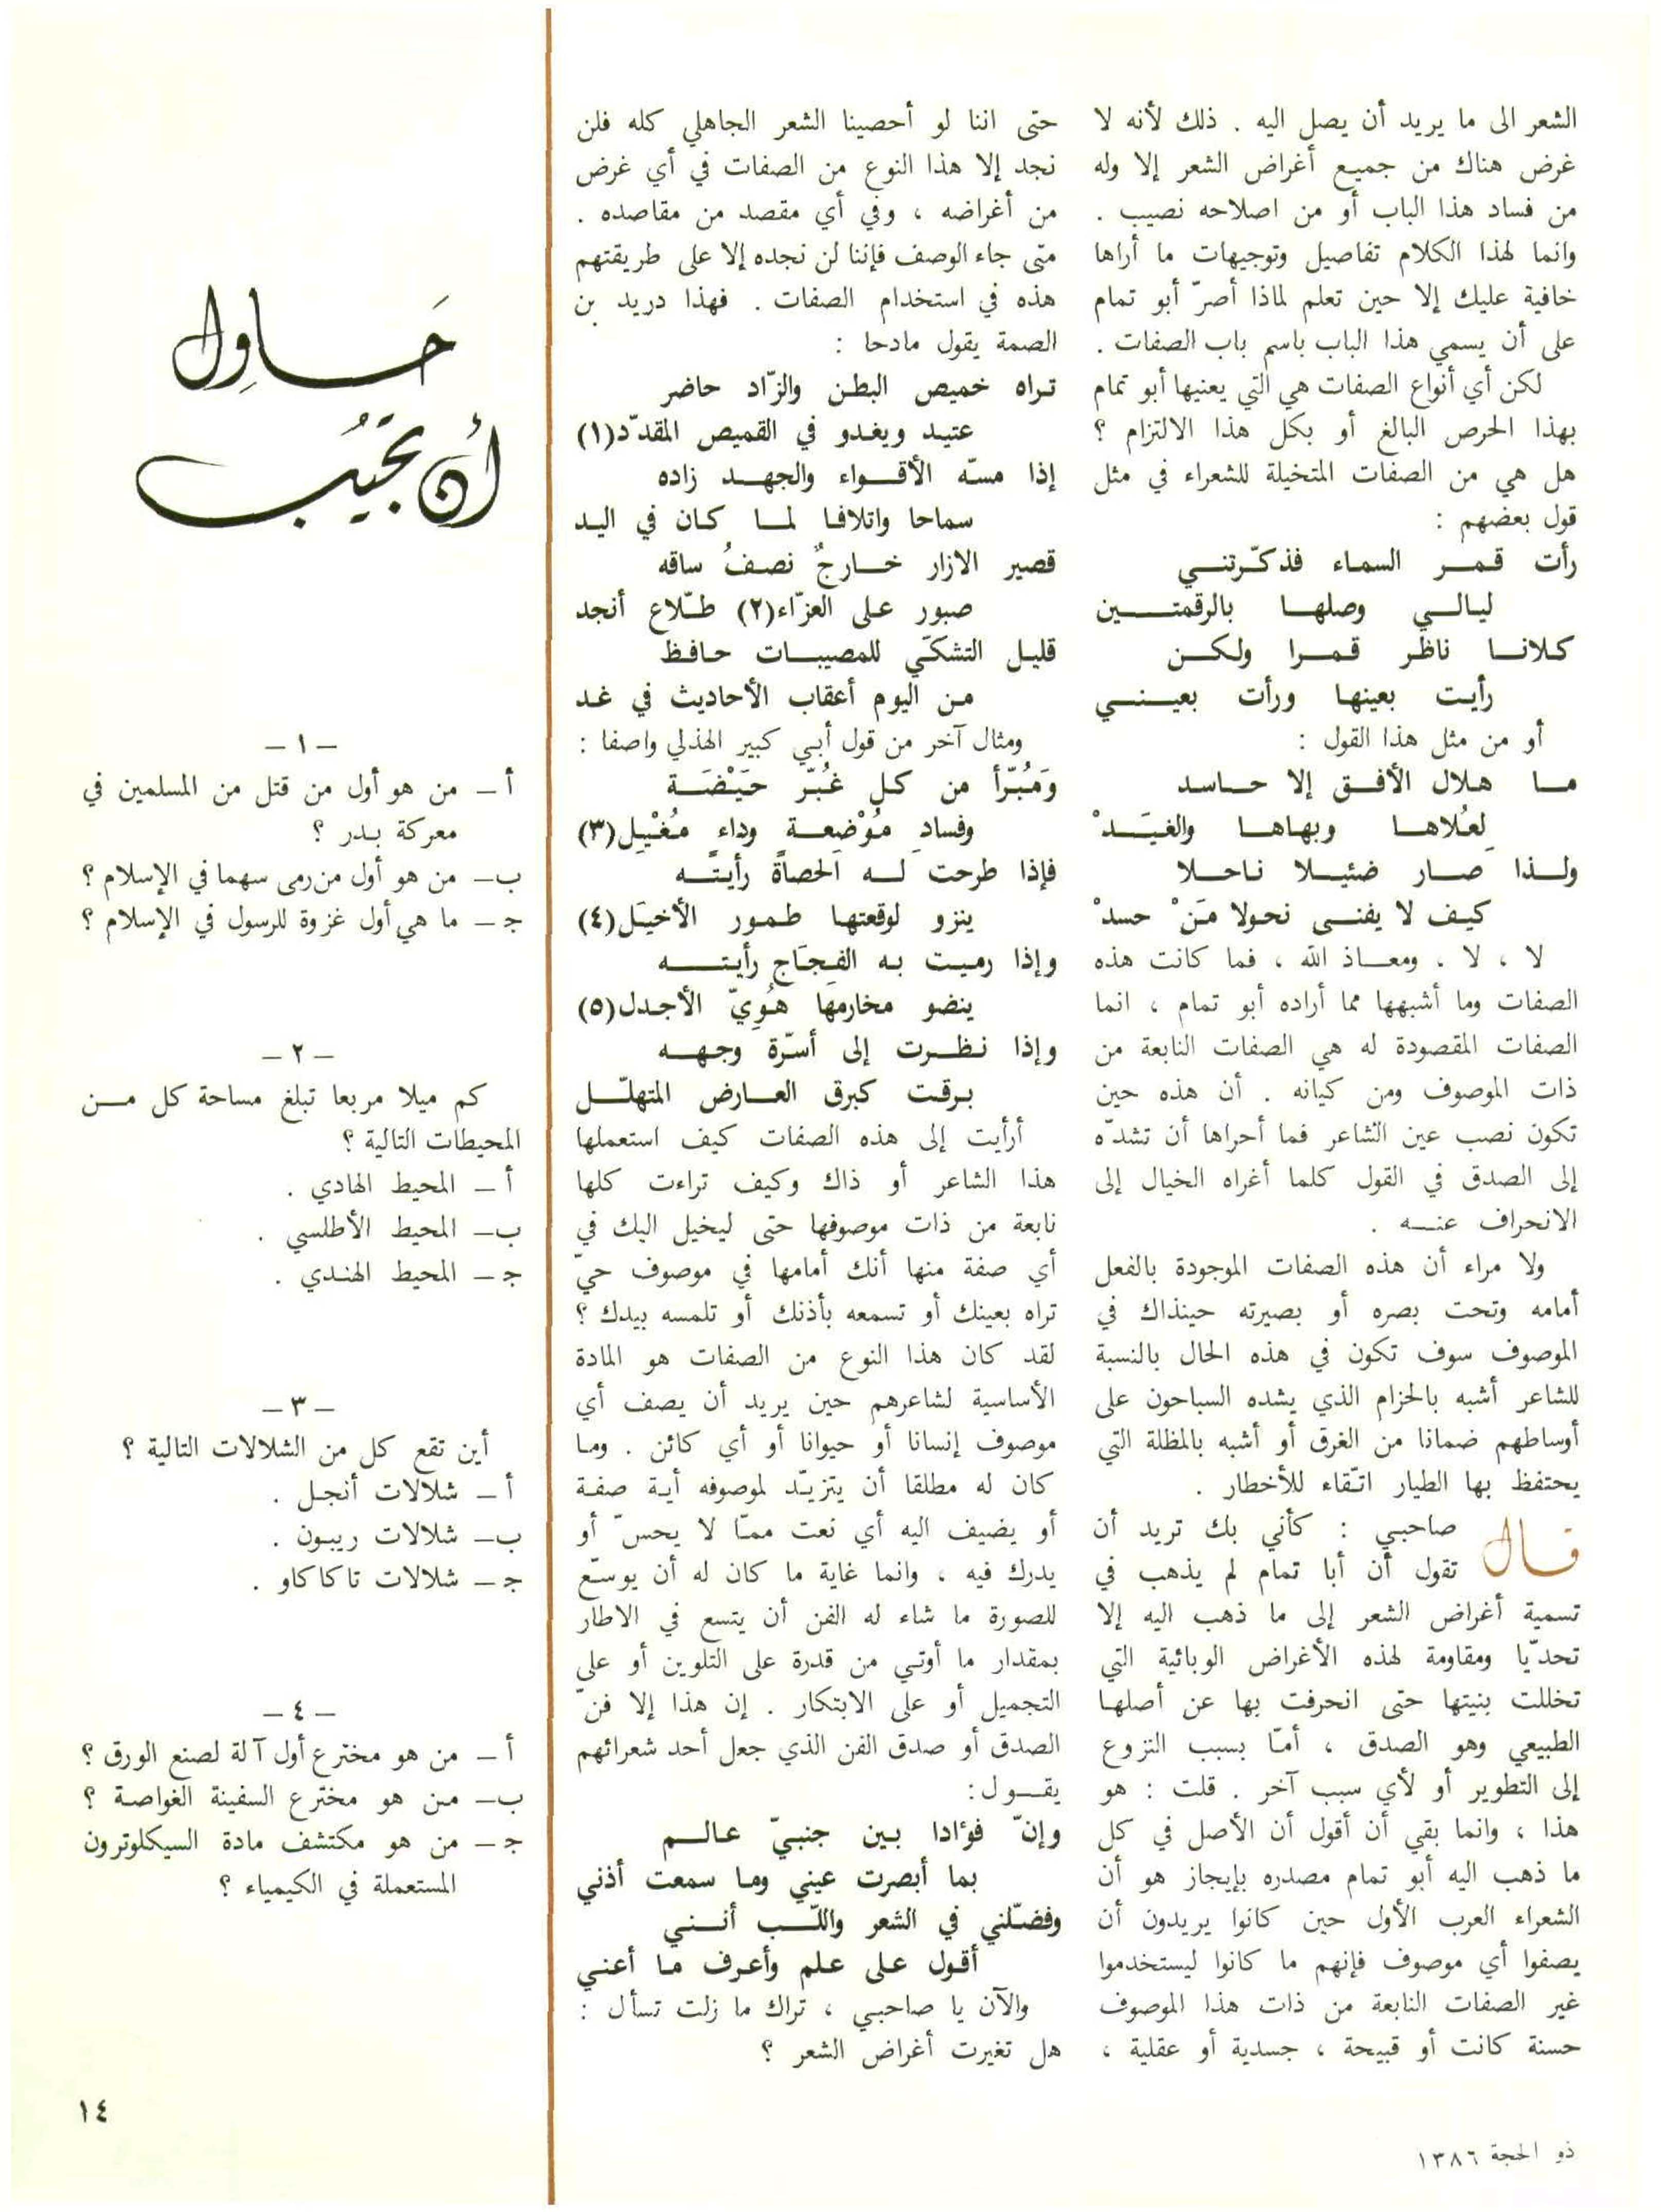 الشعر الى ما يريد أن يصل اليه . ذلك لأنه لا
غرض هناك من جميع أغراض الشعر إلا وله
من فساد هذا الباب أو من اصلاحه نصيب .
وانما لهذا الكلام تفاصيل وتوجيهات ما أراها
خافية عليك إلا حين تعلم لماذا أصرّ أبو تمام
على أن يسمي هذا الباب باسم باب الصفات .
لكن أي أنواع الصفات هي التي يعنيها أبو تمام
بهذا الحرص البالغ أو بكل هذا الالتزام ؟
هل هي من الصفات المتخيلة للشعراء في مثل
قول بعضهم :
رأت قمر السماء فذكّرتني
ليالي وصلها بالرقمتين
كلانا ناظر قمرا ولكن
رأيت بعينها ورأت بعيني
أو من مثل هذا القول :
ما هلال الأفق إلا حاسد
لِعُلاها وبهاها والغيَدْ
ولذا صار ضئيلا ناحلا
كيف لا يفنى نحولا مَنْ حسدْ
لا ، لا . ومعاذ الله ، فما كانت هذه
الصفات وما أشبهها مما أراده أبو تمام ، انما
الصفات المقصودة له هي الصفات النابعة من
ذات الموصوف ومن كيانه . أن هذه حين
تكون نصب عين الشاعر فما أحراها أن تشدّه
إلى الصدق في القول كلما أغراه الخيال إلى
الانحراف عنه .
ولا مراء أن هذه الصفات الموجودة بالفعل
أمامه وتحت بصره أو بصيرته حينذاك في
الموصوف سوف تكون في هذه الحال بالنسبة
للشاعر أشبه بالحزام الذي يشده السباحون على
أوساطهم ضمانا من الغرق أو أشبه بالمظلة التي
يحتفظ بها الطيار اتّقاء للأخطار .
قال صاحبي : كأني بك تريد أن
تقول أن أبا تمام لم يذهب في
تسمية أغراض الشعر إلى ما ذهب اليه إلا
تحدّيا ومقاومة لهذه الأغراض الوبائية التي
تخللت بنيتها حتى انحرفت بها عن أصلها
الطبيعي وهو الصدق ، أمّا بسبب النزوع
إلى التطوير أو لأي سبب آخر . قلت : هو
هذا ، وانما بقي أن أقول أن الأصل في كل
ما ذهب اليه أبو تمام مصدره بإيجاز هو أن
الشعراء العرب الأول حين كانوا يريدون أن
يصفوا أي موصوف فإنهم ما كانوا ليستخدموا
غير الصفات النابعة من ذات هذا الموصوف
حسنة كانت أو قبيحة ، جسدية أو عقلية ،
حتى اننا لو أحصينا الشعر الجاهلي كله فلن
نجد إلا هذا النوع من الصفات في أي غرض
من أغراضه ، وفي أي مقصد من مقاصده .
متى جاء الوصف فإننا لن نجده إلا على طريقتهم
هذه في استخدام الصفات . فهذا دريد بن
الصمة يقول مادحا :
تراه خميص البطن والزّاد حاضر
عتيد ويغدو في القميص المقدّد(١)
إذا مسّه الأقواء والجهد زاده
سماحا واتلافا لما كان في اليد
قصير الازار خارجٌ نصفُ ساقه
صبور على العزّاء(٢) طلّاع أنجد
قليل التشكّي للمصيبات حافظ
من اليوم أعقاب الأحاديث في غد
ومثال آخر من قول أبي كبير الهذلي واصفا :
وَمُبَرّأ من كل غُبّر حَيْضَة
وفسادِ مُوْضعة وداءِ مُغْيِل(٣)
فإذا طرحت له الحصاةَ رأيتَه
ينزو لوقعتها طمور الأخيَل(٤)
وإذا رميت به الفِجَاج رأيته
ينضو مخارمها هُوِيّ الأجدل(٥)
وإذا نظرت إلى أسّرة وجهه
برقت كبرق العارض المتهلّل
أرأيت إلى هذه الصفات كيف استعملها
هذا الشاعر أو ذاك وكيف تراءت كلها
نابعة من ذات موصوفها حتى ليخيل اليك في
أي صفة منها أنك أمامها في موصوف حيّ
تراه بعينك أو تسمعه بأذنك أو تلمسه بيدك ؟
لقد كان هذا النوع من الصفات هو المادة
الأساسية لشاعرهم حين يريد أن يصف أي
موصوف إنسانا أو حيوانا أو أي كائن . وما
كان له مطلقا أن يتزيّد لموصوفه أية صفة
أو يضيف اليه أي نعت ممّا لا يحسّ أو
يدرك فيه ، وانما غاية ما كان له أن يوسّع
للصورة ما شاء له الفن أن يتسع في الاطار
بمقدار ما أوتي من قدرة على التلوين أو على
التجميل أو على الابتكار . إن هذا إلا فنّ
الصدق أو صدق الفن الذي جعل أحد شعرائهم
يقول:
وإنّ فؤادا بين جنبيّ عالم
بما أبصرت عيني وما سمعت أذني
وفضّلني في الشعر واللّب أنني
أقول على علم وأعرف ما أعني
والآن يا صاحبي ، تراك ما زلت تسأل :
هل تغيرت أغراض الشعر ؟
حَاوِل
أن تجيُب
— ١ —
أ — من هو أول من قتل من المسلمين في
معركة بدر ؟
ب— من هو أول من رمى سهما في الإسلام ؟
ج — ما هي أول غزوة للرسول في الإسلام ؟
— ٢ —
كم ميلا مربعا تبلغ مساحة كل من
المحيطات التالية ؟
أ — المحيط الهادي .
ب— المحيط الأطلسي .
ج — المحيط الهندي .
— ٣ —
أين تقع كل من الشلالات التالية ؟
أ — شلالات أنجل .
ب— شلالات ريبون .
ج — شلالات تاكاكاو .
— ٤ —
أ — من هو مخترع أول آلة لصنع الورق ؟
ب— من هو مخترع السفينة الغواصة ؟
ج — من هو مكتشف مادة السيكلوترون
المستعملة في الكيمياء ؟
١٤
ذو الحجة ١٣٨٦